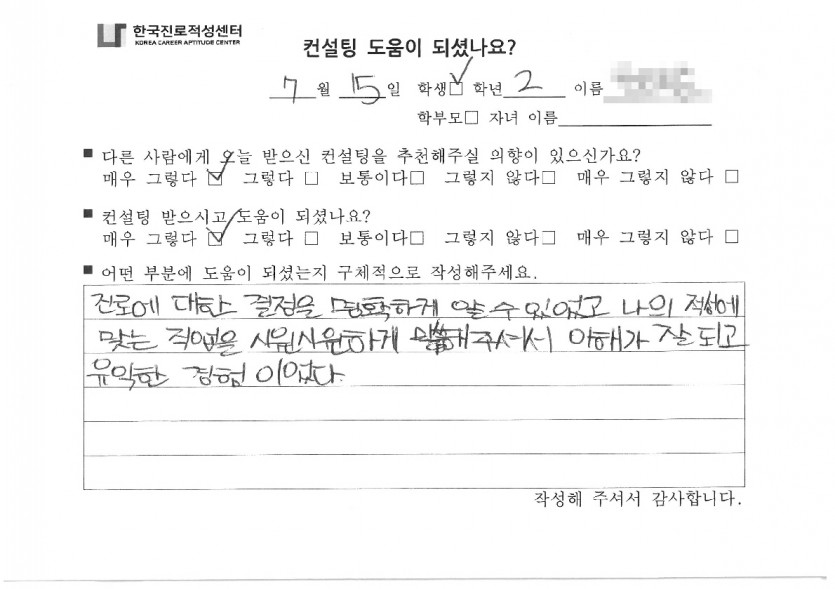 한국진로적성센터
KOREA CAREER APTITUDE CENTER
컨설팅 도움이 되셨나요?
7월 15일 학생☑ 학년 2 이름
학부모□ 자녀 이름
■ 다른 사람에게 오늘 받으신 컨설팅을 추천해주실 의향이 있으신가요?
매우 그렇다 ☑ 그렇다 □ 보통이다□ 그렇지 않다□ 매우 그렇지 않다 □
■ 컨설팅 받으시고 도움이 되셨나요?
매우 그렇다 ☑ 그렇다 □ 보통이다□ 그렇지 않다□ 매우 그렇지 않다 □
■ 어떤 부분에 도움이 되셨는지 구체적으로 작성해주세요.
진로에 대한 결정을 명확하게 알 수 있었고 나의 적성에
맞는 직업을 시원시원하게 말씀해주셔서 이해가 잘 되고
유익한 경험이었다.
작성해 주셔서 감사합니다.